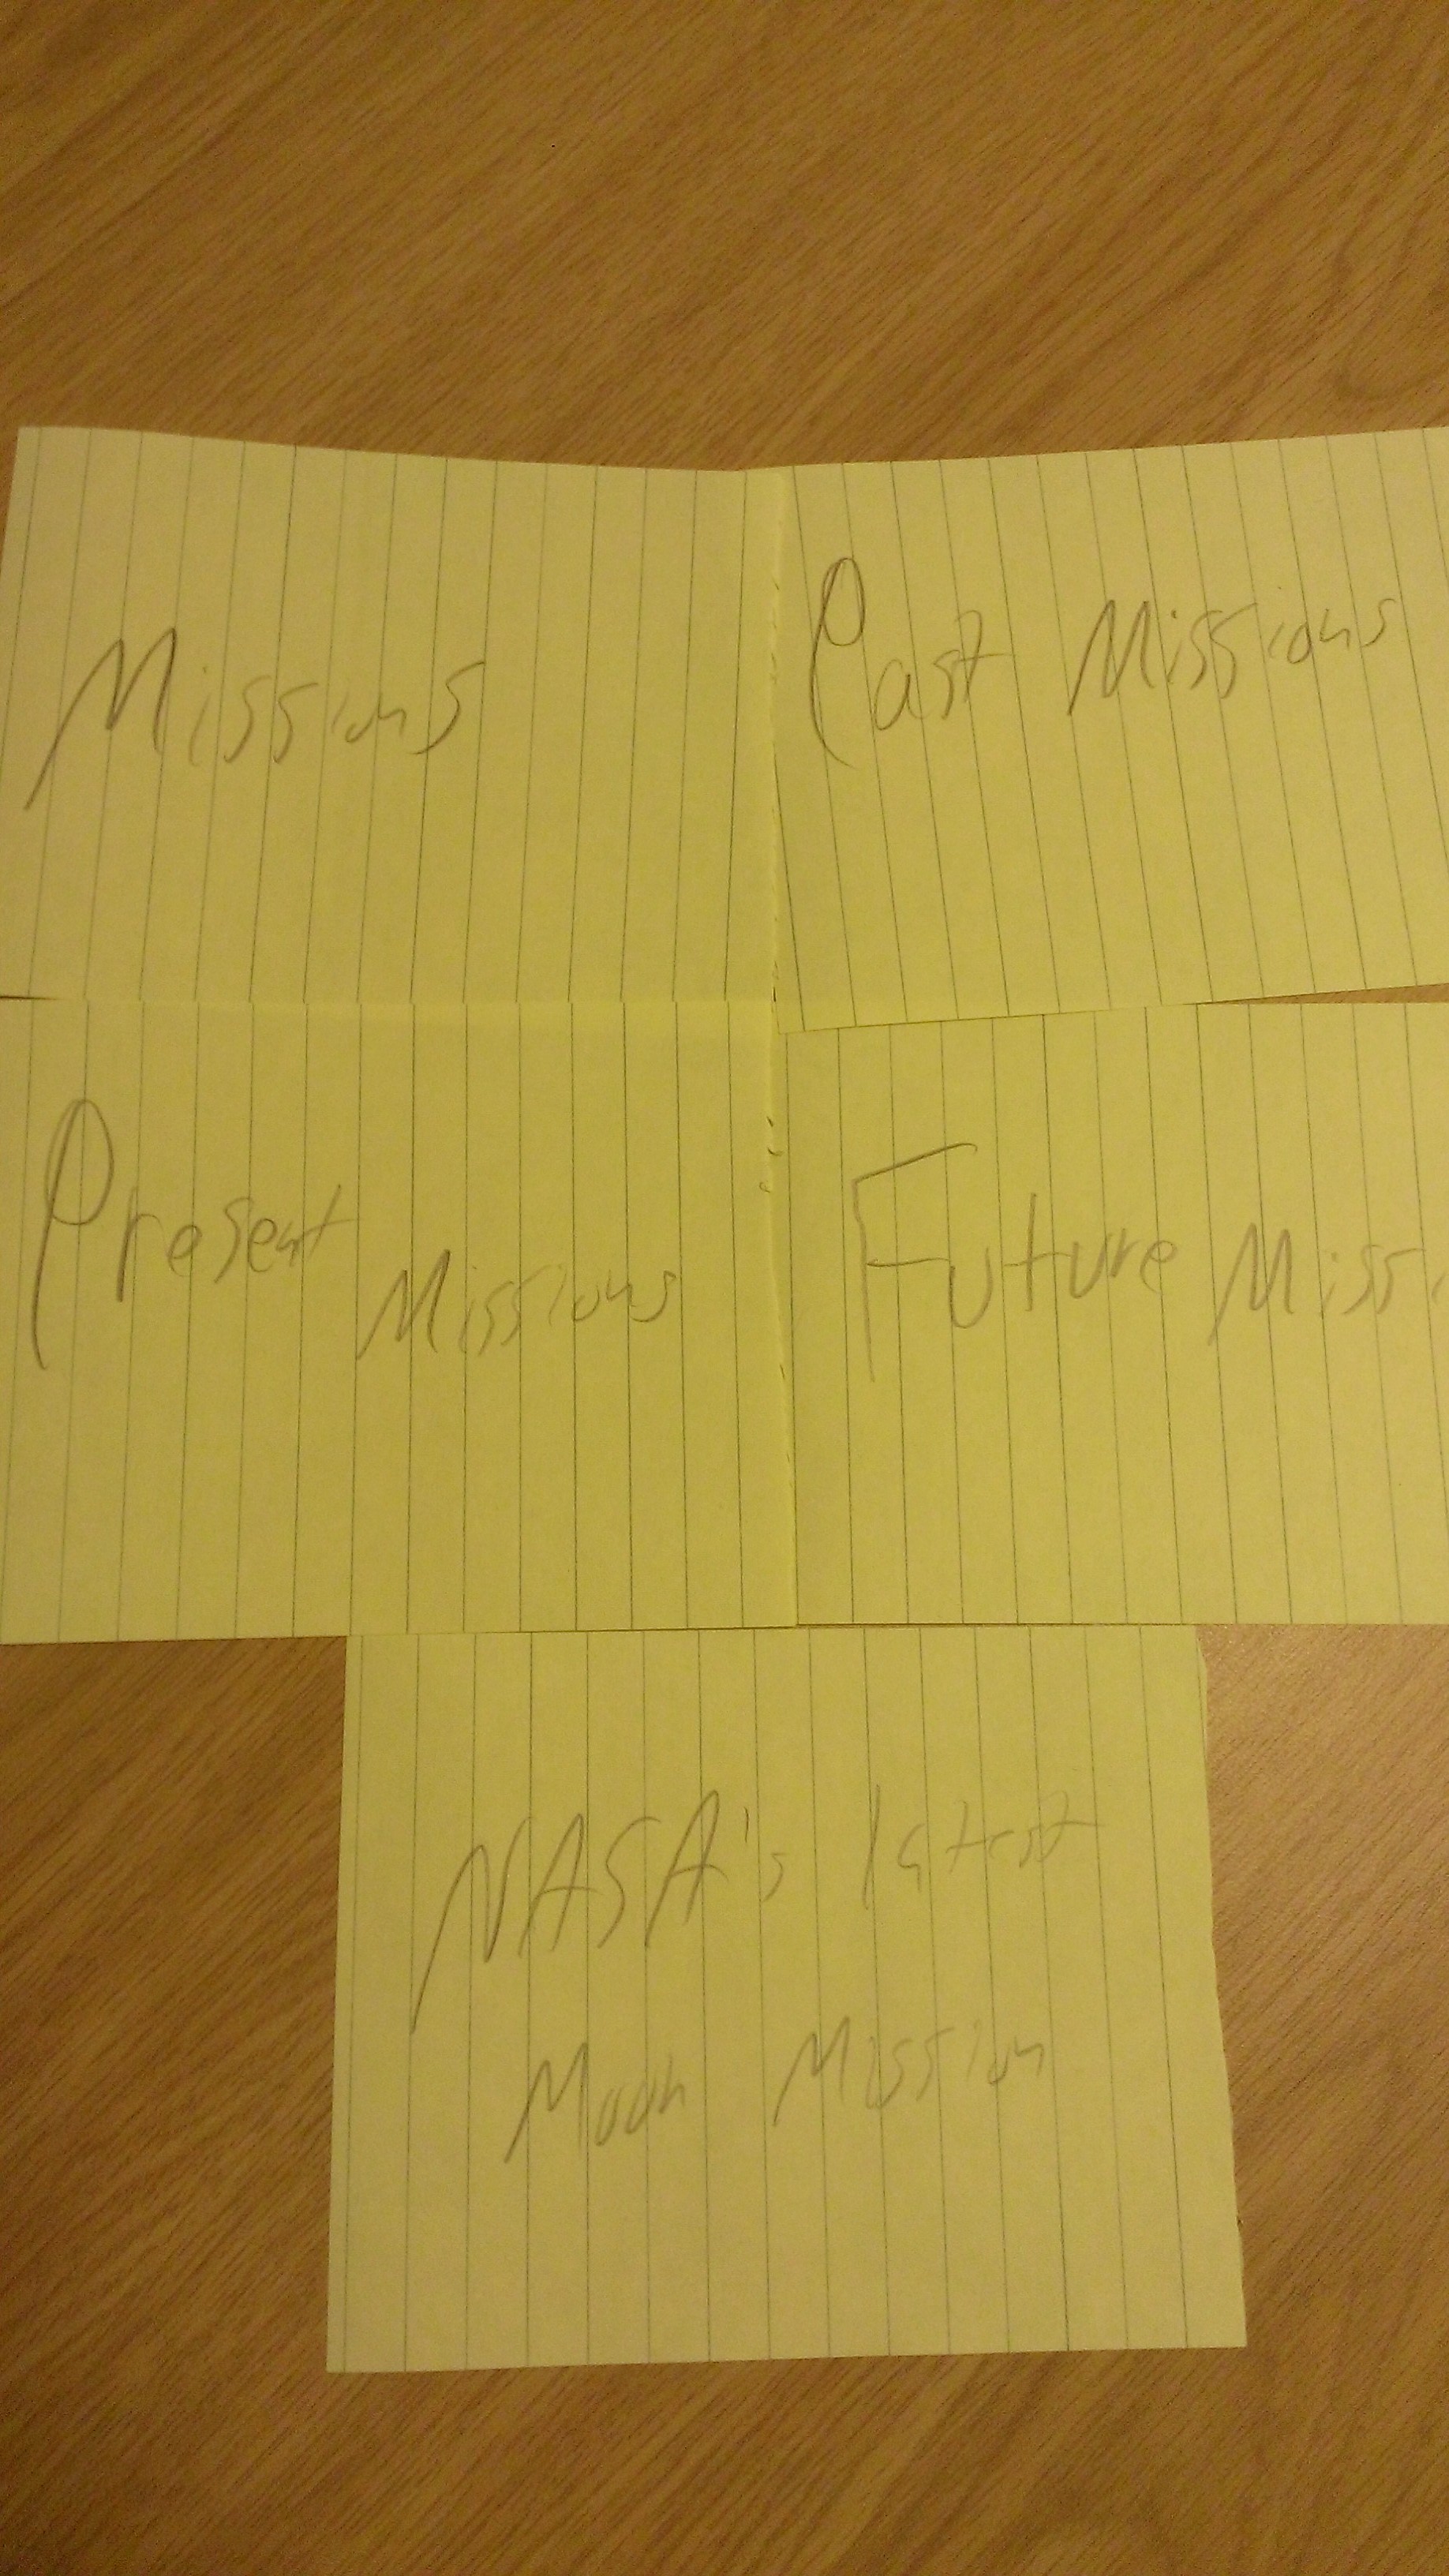 Missions
Past Missions
Present
Missions
Future Missi
NASA's latest
Moon Mission